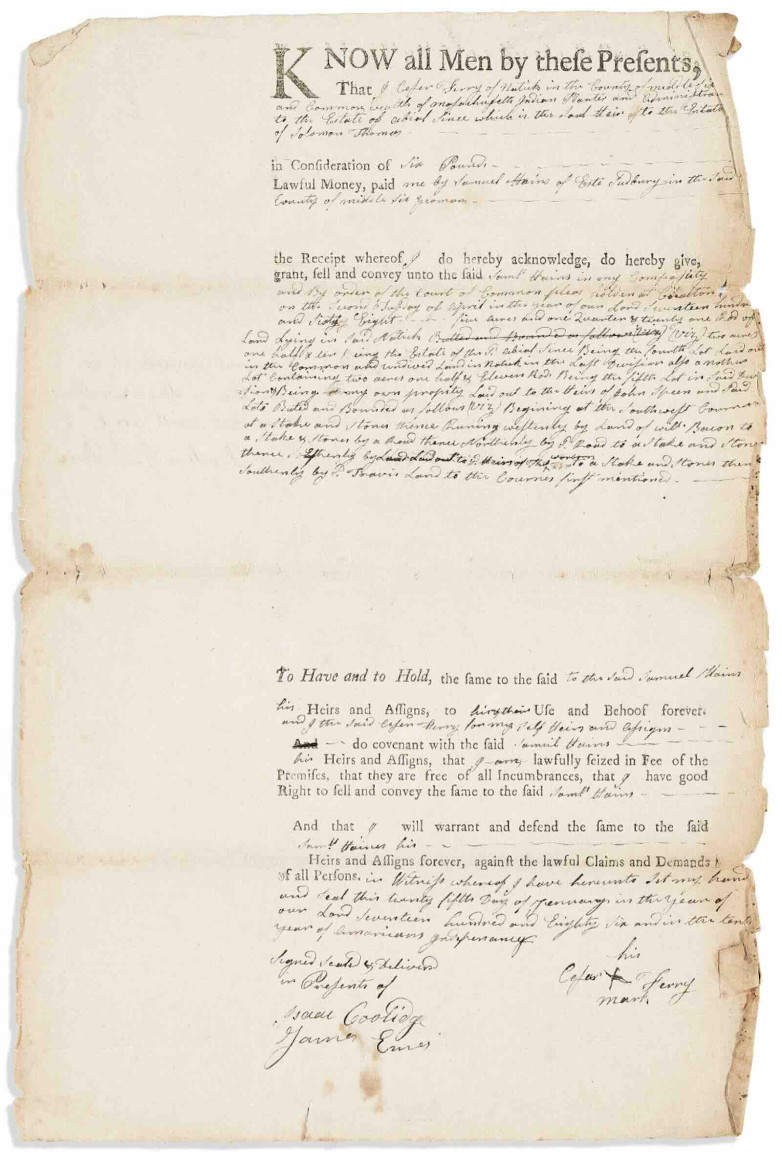 KNOW all Men by theſe Preſents,
That I Cesar Ferry of Natick in the County of middle Six
and Common Wealth of masachusetts Indian Planter and Administrator
to the Estate of abial Since which is the Soul Heir to the Estate
of Solomon Thomas
in Conſideration of Six Pounds
Lawful Money, paid me by Samuel Hains of Este Sudbury in the Said
County of middle Six yeoman
the Receipt whereof, I do hereby acknowledge, do hereby give,
grant, ſell and convey unto the ſaid Samll Hains in my Compasity
and By order of the Court of Common pleas holden at
on the Second Tusday of April in the year of our Lord Seventeen hundred
and Eight five acres and one Quarter & twenty one Rod of
Land Lying in Said Natick Butted and Bounded as follows (viz) (viz) two acres
one half & ten being the Estate of the Sd abial Since Being the fourth Lot Laid out
in the Common and undivied Land in Natick in the Last Devision also a nother
Lot Containing two acres one half & Eleven Rods Being the fifth Lot in Said Devi
sion & Being my own propity Laid out to the Heirs of John Speen and Said
Lots Buted and Bounded as follows (viz) Begining at the Southwest Corner
at a Stake and Stones thence Runing westenly by Land of will: Bacon to
a Stake & Stones by a Road thence Northenly by Sd Road to a Stake and Stones
thence Esthenly by Land Laid out to Heirs of to a Stake and Stones then
Southenly by Sd Travis Land to the Cournes first mentioned.
To Have and to Hold, the ſame to the ſaid to the Said Samuel Hains
his Heirs and Aſſigns, to his & their Uſe and Behoof forever.
and I the Said Cesar Ferry for my Self Heirs and Assigns
And do covenant with the ſaid Samuel Hains
his Heirs and Aſſigns, that I am lawfully ſeized in Fee of the
Premiſes, that they are free of all Incumbrances, that I have good
Right to ſell and convey the ſame to the ſaid Samll Hains
And that I will warrant and defend the ſame to the ſaid
Samll Haines his
Heirs and Aſſigns forever, againſt the lawful Claims and Demands
of all Perſons. in Witness whereof I have hereunto Set my hand
and Seal this twenty fifth Day of Jennuary in the year of
our Lord Seventeen hundred and Eighty Six and in the tenth
year of Americans Indepenancy
Signed Seald & Deliverd
in Presents of
his
Cesar X Ferry
mark
Isaac Coolidge
James Emes